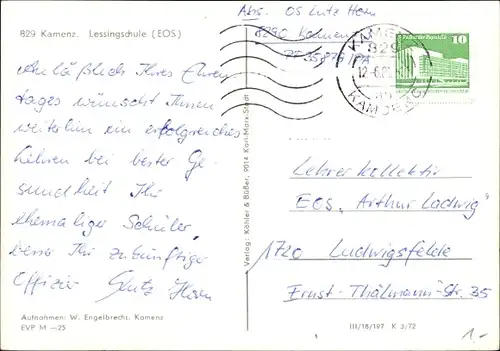 829 Kamenz. Lessingschule (EOS)
Abs. OS Lutz Horn
8290 Kamenz
PF 35876 /PA
Anläßlich Ihres Ehren
tages wünscht Ihnen
weiterhin ein erfolgreiches
Lehren bei bester Ge-
sundheit Ihr
ehemaliger Schüler,
Ihr zukünftiger
Offizier Lutz Horn
Aufnahmen: W. Engelbrecht, Kamenz
EVP M —25
Verlag: Köhler & Büßer, 9014 Karl-Marx-Stadt
KAMENZ
829
10
Lehrerkollektiv
EOS „Arthur Ladwig"
1720 Ludwigsfelde
Ernst-Thälmann-Str. 35
III/18/197 K 3/72
1.-